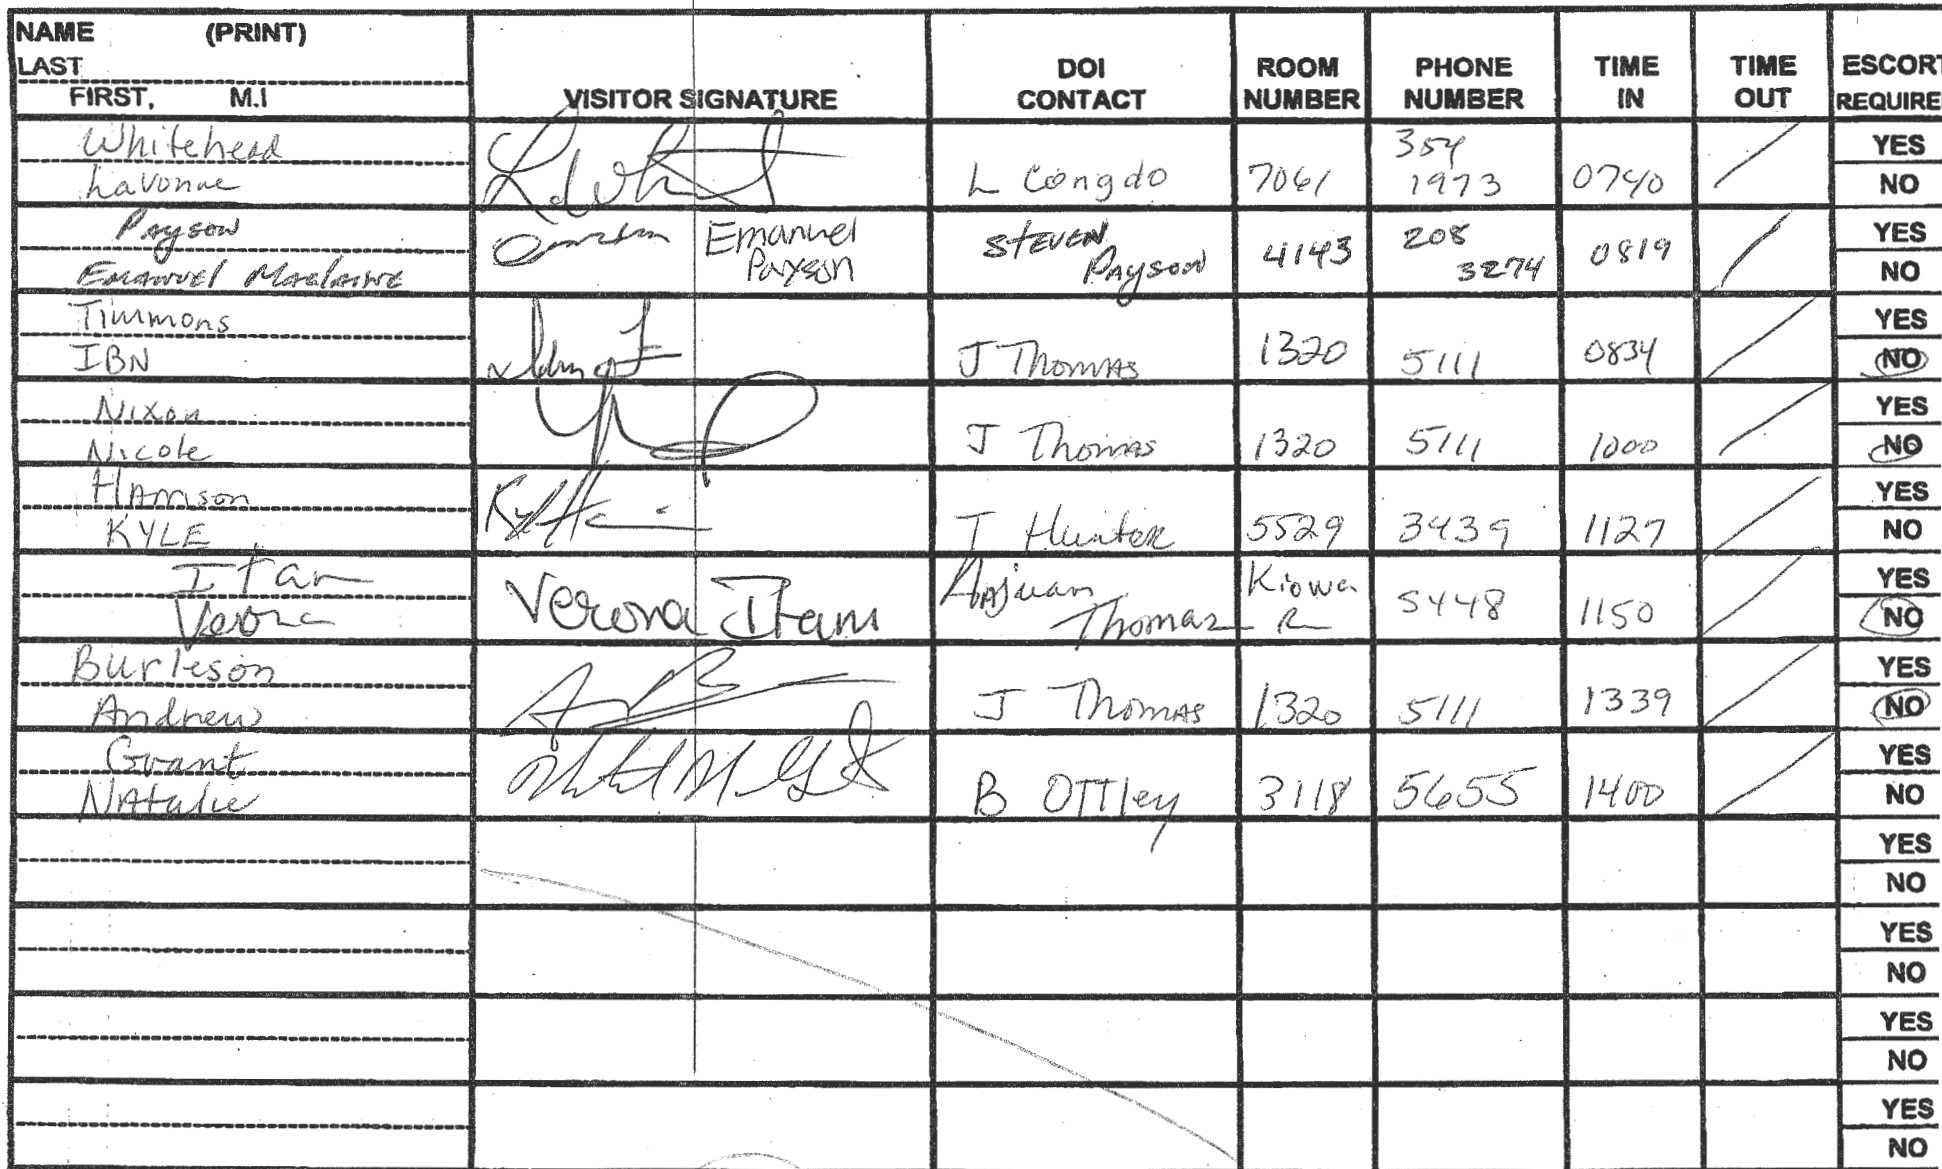 NAME (PRINT)
LAST
FIRST, M.I
VISITOR SIGNATURE
DOI
CONTACT
ROOM
NUMBER
PHONE
NUMBER
TIME
IN
TIME
OUT
ESCORT
REQUIRE
Whitehead
Lavonne
L Congdo
7061
354
1973
0740
YES
NO
Payson
Emanuel
Emanuel
Payson
STEVEN
Payson
4143
208
3274
0819
YES
NO
Timmons
IBN
J Thomas
1320
5111
0834
YES
NO
Nixon
Nicole
J Thomas
1320
5111
1000
YES
NO
Harrison
KYLE
T Hunter
5529
3439
1127
YES
NO
Itam
Verona
Verona Itam
Thomas
Kiowa
R
5448
1150
YES
NO
Burleson
Andrew
J Thomas
1320
5111
1339
YES
NO
Grant
Natalie
B Ottley
3118
5655
1400
YES
NO
YES
NO
YES
NO
YES
NO
YES
NO